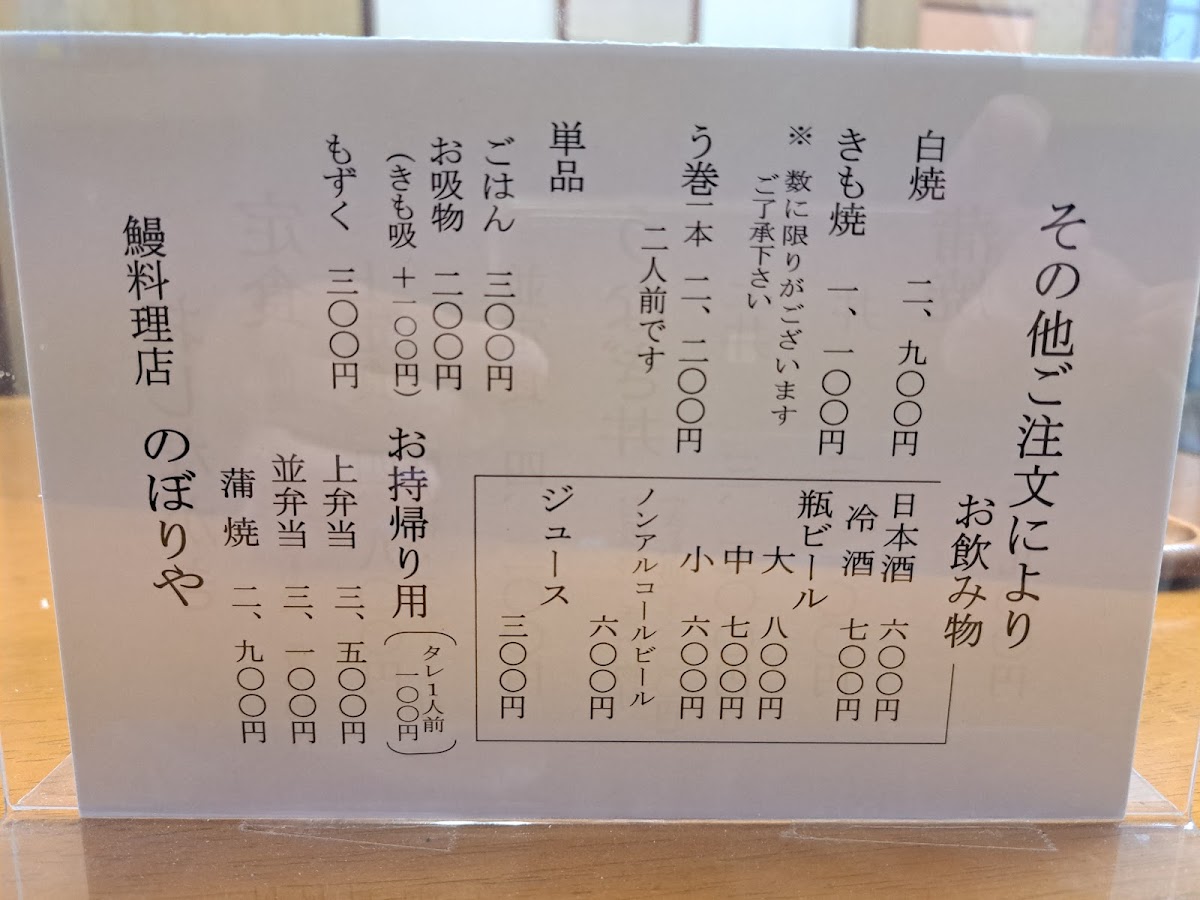 その他ご注文により
白焼 二、九〇〇円
きも焼 一、一〇〇円
※ 数に限りがございます
ご了承下さい
う巻一本 二、二〇〇円
二人前です
単品
ごはん 三〇〇円
お吸物 二〇〇円
（きも吸 ＋一〇〇円）
もずく 三〇〇円
お飲み物
日本酒 六〇〇円
冷酒 七〇〇円
瓶ビール
大 八〇〇円
中 七〇〇円
小 六〇〇円
ノンアルコールビール
六〇〇円
ジュース
三〇〇円
お持帰り用
（タレ1人前
一〇〇円）
上弁当 三、五〇〇円
並弁当 三、一〇〇円
蒲焼 二、九〇〇円
鰻料理店 のぼりや